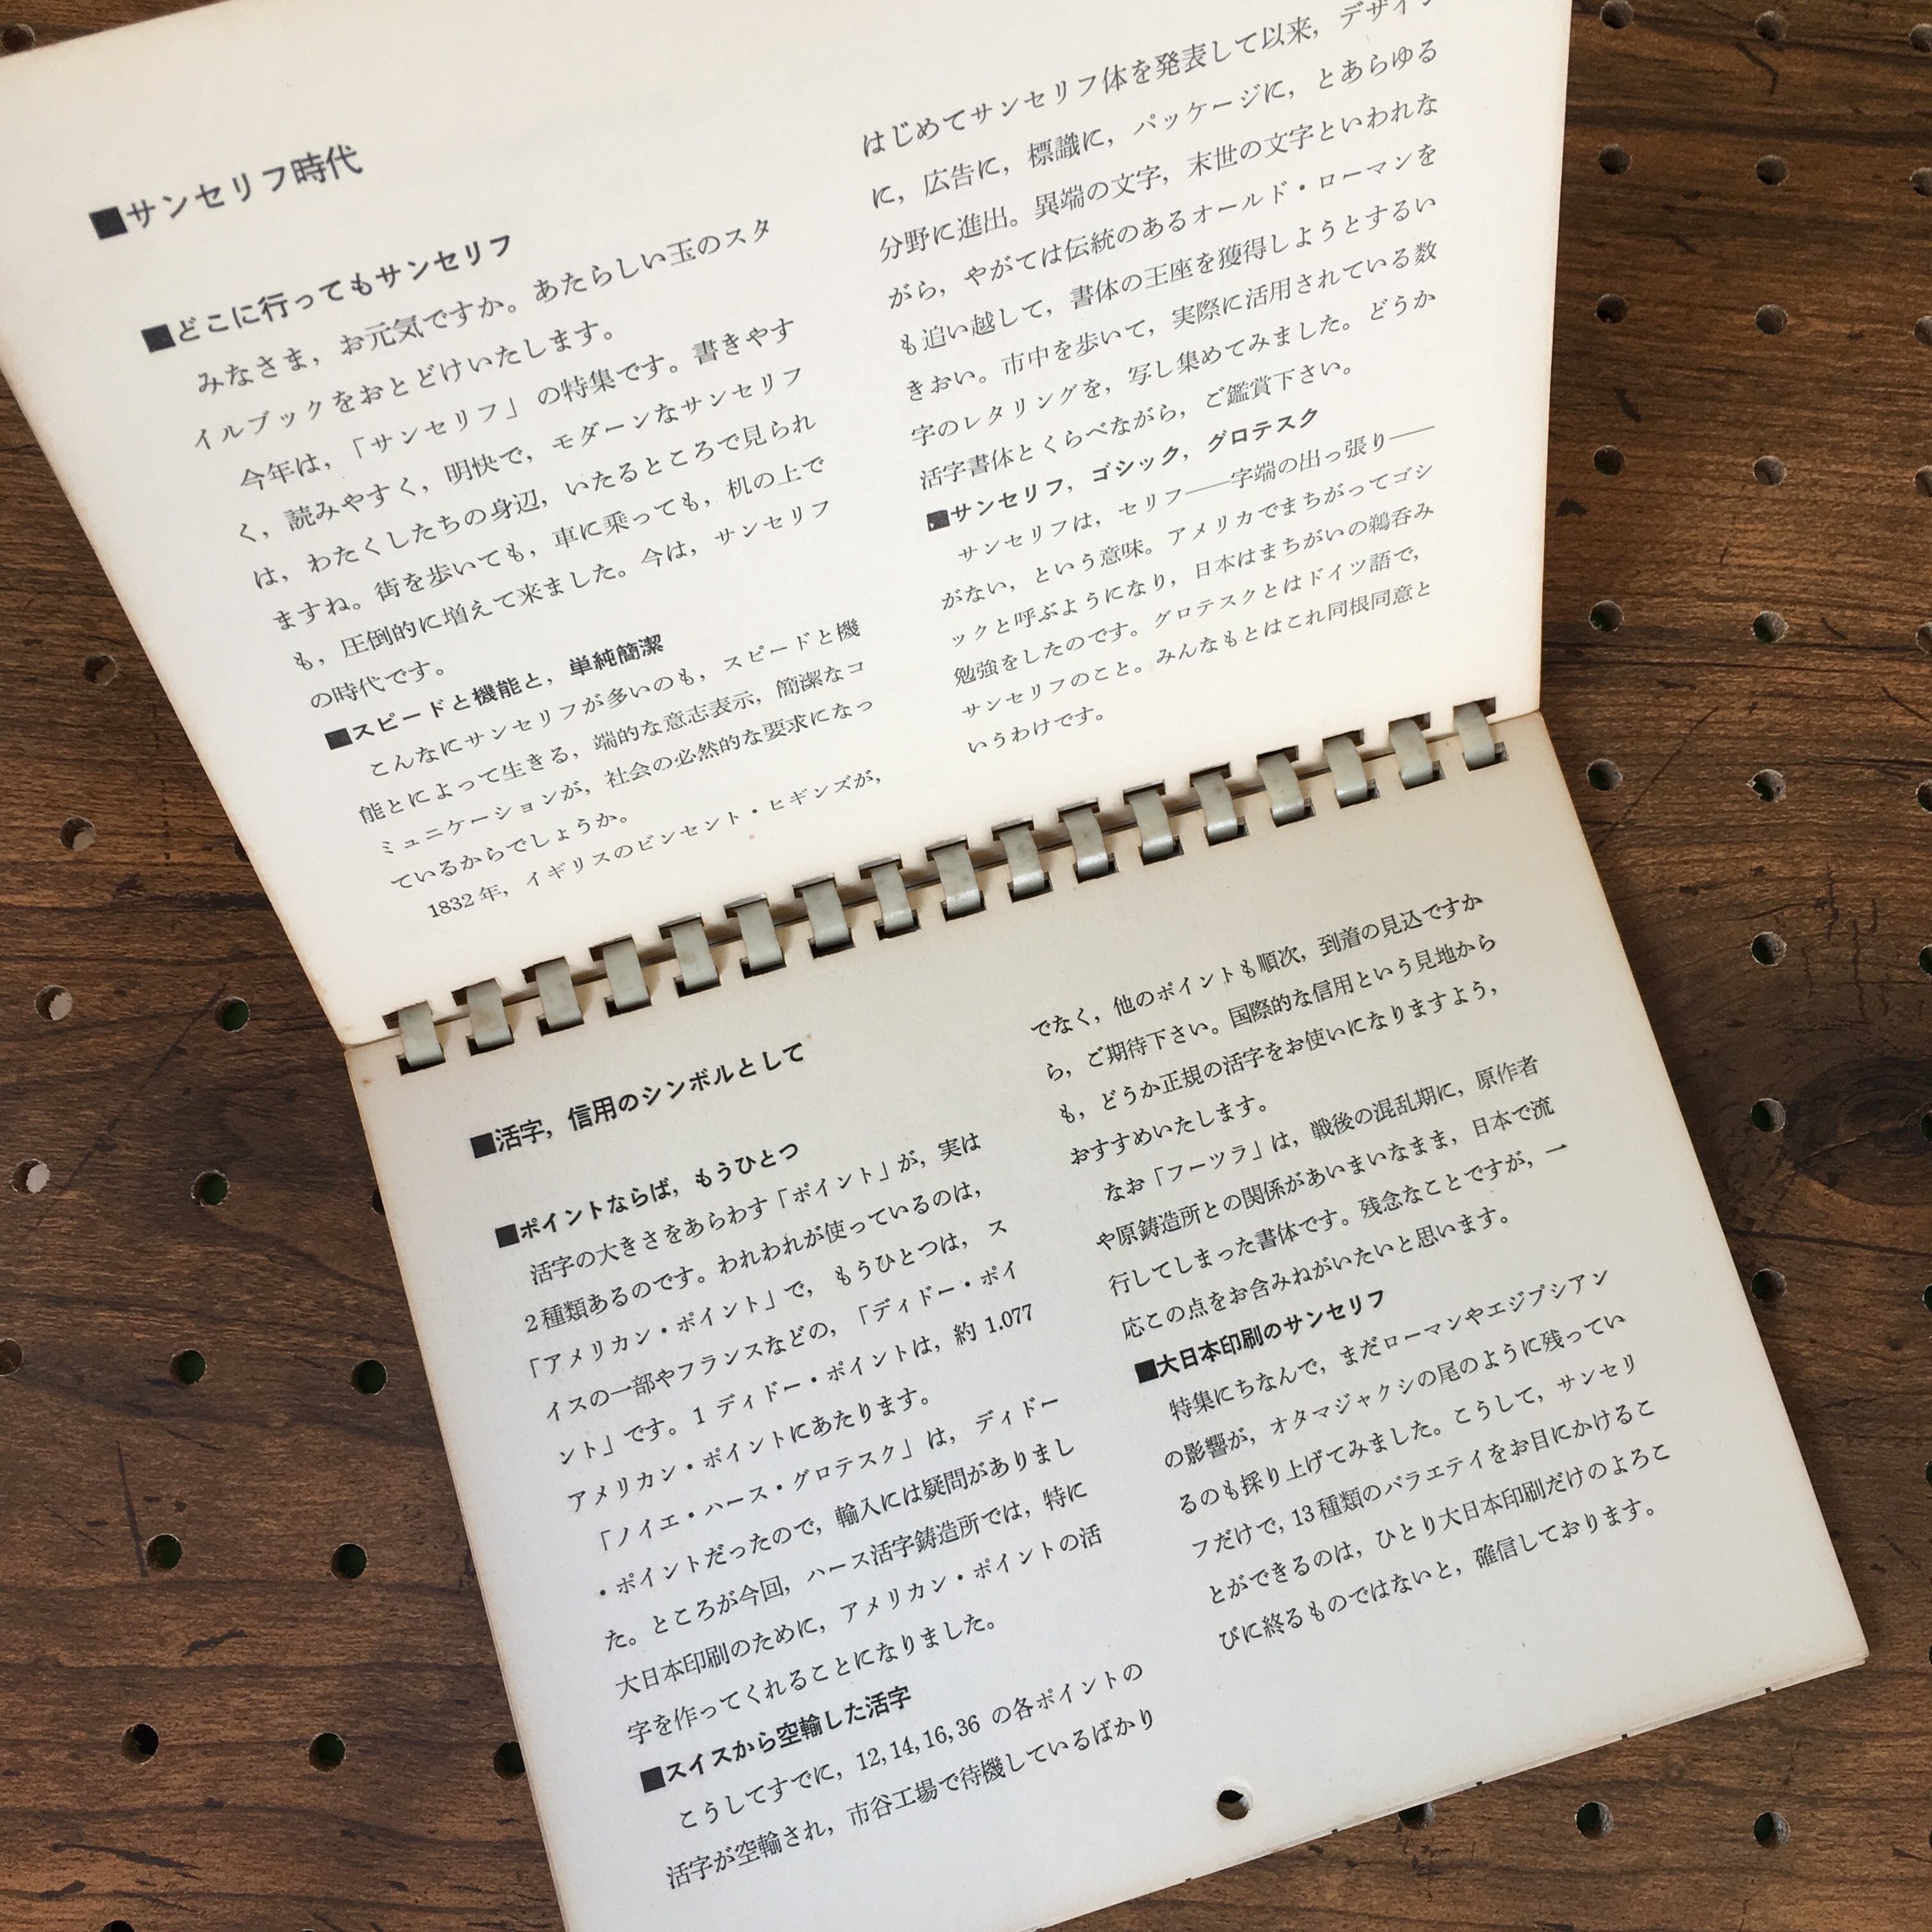 ■サンセリフ時代
■どこに行ってもサンセリフ
みなさま，お元気ですか。あたらしい玉のスタ
イルブックをおとどけいたします。
今年は，「サンセリフ」の特集です。書きやす
く，読みやすく，明快で，モダーンなサンセリフ
は，わたくしたちの身辺，いたるところで見られ
ますね。街を歩いても，車に乗っても，机の上で
も，圧倒的に増えて来ました。今は，サンセリフ
の時代です。
■スピードと機能と，単純簡潔
こんなにサンセリフが多いのも，スピードと機
能とによって生きる，端的な意志表示，簡潔なコ
ミュニケーションが，社会の必然的な要求になっ
ているからでしょうか。
1832年，イギリスのビンセント・ヒギンズが，
はじめてサンセリフ体を発表して以来，デザイン
に，広告に，標識に，パッケージに，とあらゆる
分野に進出。異端の文字，末世の文字といわれな
がら，やがては伝統のあるオールド・ローマンを
も追い越して，書体の王座を獲得しようとするい
きおい。市中を歩いて，実際に活用されている数
字のレタリングを，写し集めてみました。どうか
活字書体とくらべながら，ご鑑賞下さい。
■サンセリフ，ゴシック，グロテスク
サンセリフは，セリフ――字端の出っ張り――
がない，という意味。アメリカでまちがってゴシ
ックと呼ぶようになり，日本はまちがいの鵜呑み
勉強をしたのです。グロテスクとはドイツ語で，
サンセリフのこと。みんなもとはこれ同根同意と
いうわけです。
■活字，信用のシンボルとして
■ポイントならば，もうひとつ
活字の大きさをあらわす「ポイント」が，実は
2種類あるのです。われわれが使っているのは，
「アメリカン・ポイント」で，もうひとつは，ス
イスの一部やフランスなどの，「ディドー・ポイ
ント」です。1 ディドー・ポイントは，約 1.077
アメリカン・ポイントにあたります。
「ノイエ・ハース・グロテスク」は，ディドー
・ポイントだったので，輸入には疑問がありまし
た。ところが今回，ハース活字鋳造所では，特に
大日本印刷のために，アメリカン・ポイントの活
字を作ってくれることになりました。
■スイスから空輸した活字
こうしてすでに，12，14，16，36 の各ポイントの
活字が空輸され，市谷工場で待機しているばかり
でなく，他のポイントも順次，到着の見込ですか
ら，ご期待下さい。国際的な信用という見地から
も，どうか正規の活字をお使いになりますよう，
おすすめいたします。
なお「フーツラ」は，戦後の混乱期に，原作者
や原鋳造所との関係があいまいなまま，日本で流
行してしまった書体です。残念なことですが，一
応この点をお含みねがいたいと思います。
■大日本印刷のサンセリフ
特集にちなんで，まだローマンやエジプシアン
の影響が，オタマジャクシの尾のように残ってい
るのも採り上げてみました。こうして，サンセリ
フだけで，13種類のバラエテイをお目にかけるこ
とができるのは，ひとり大日本印刷だけのよろこ
びに終るものではないと，確信しております。